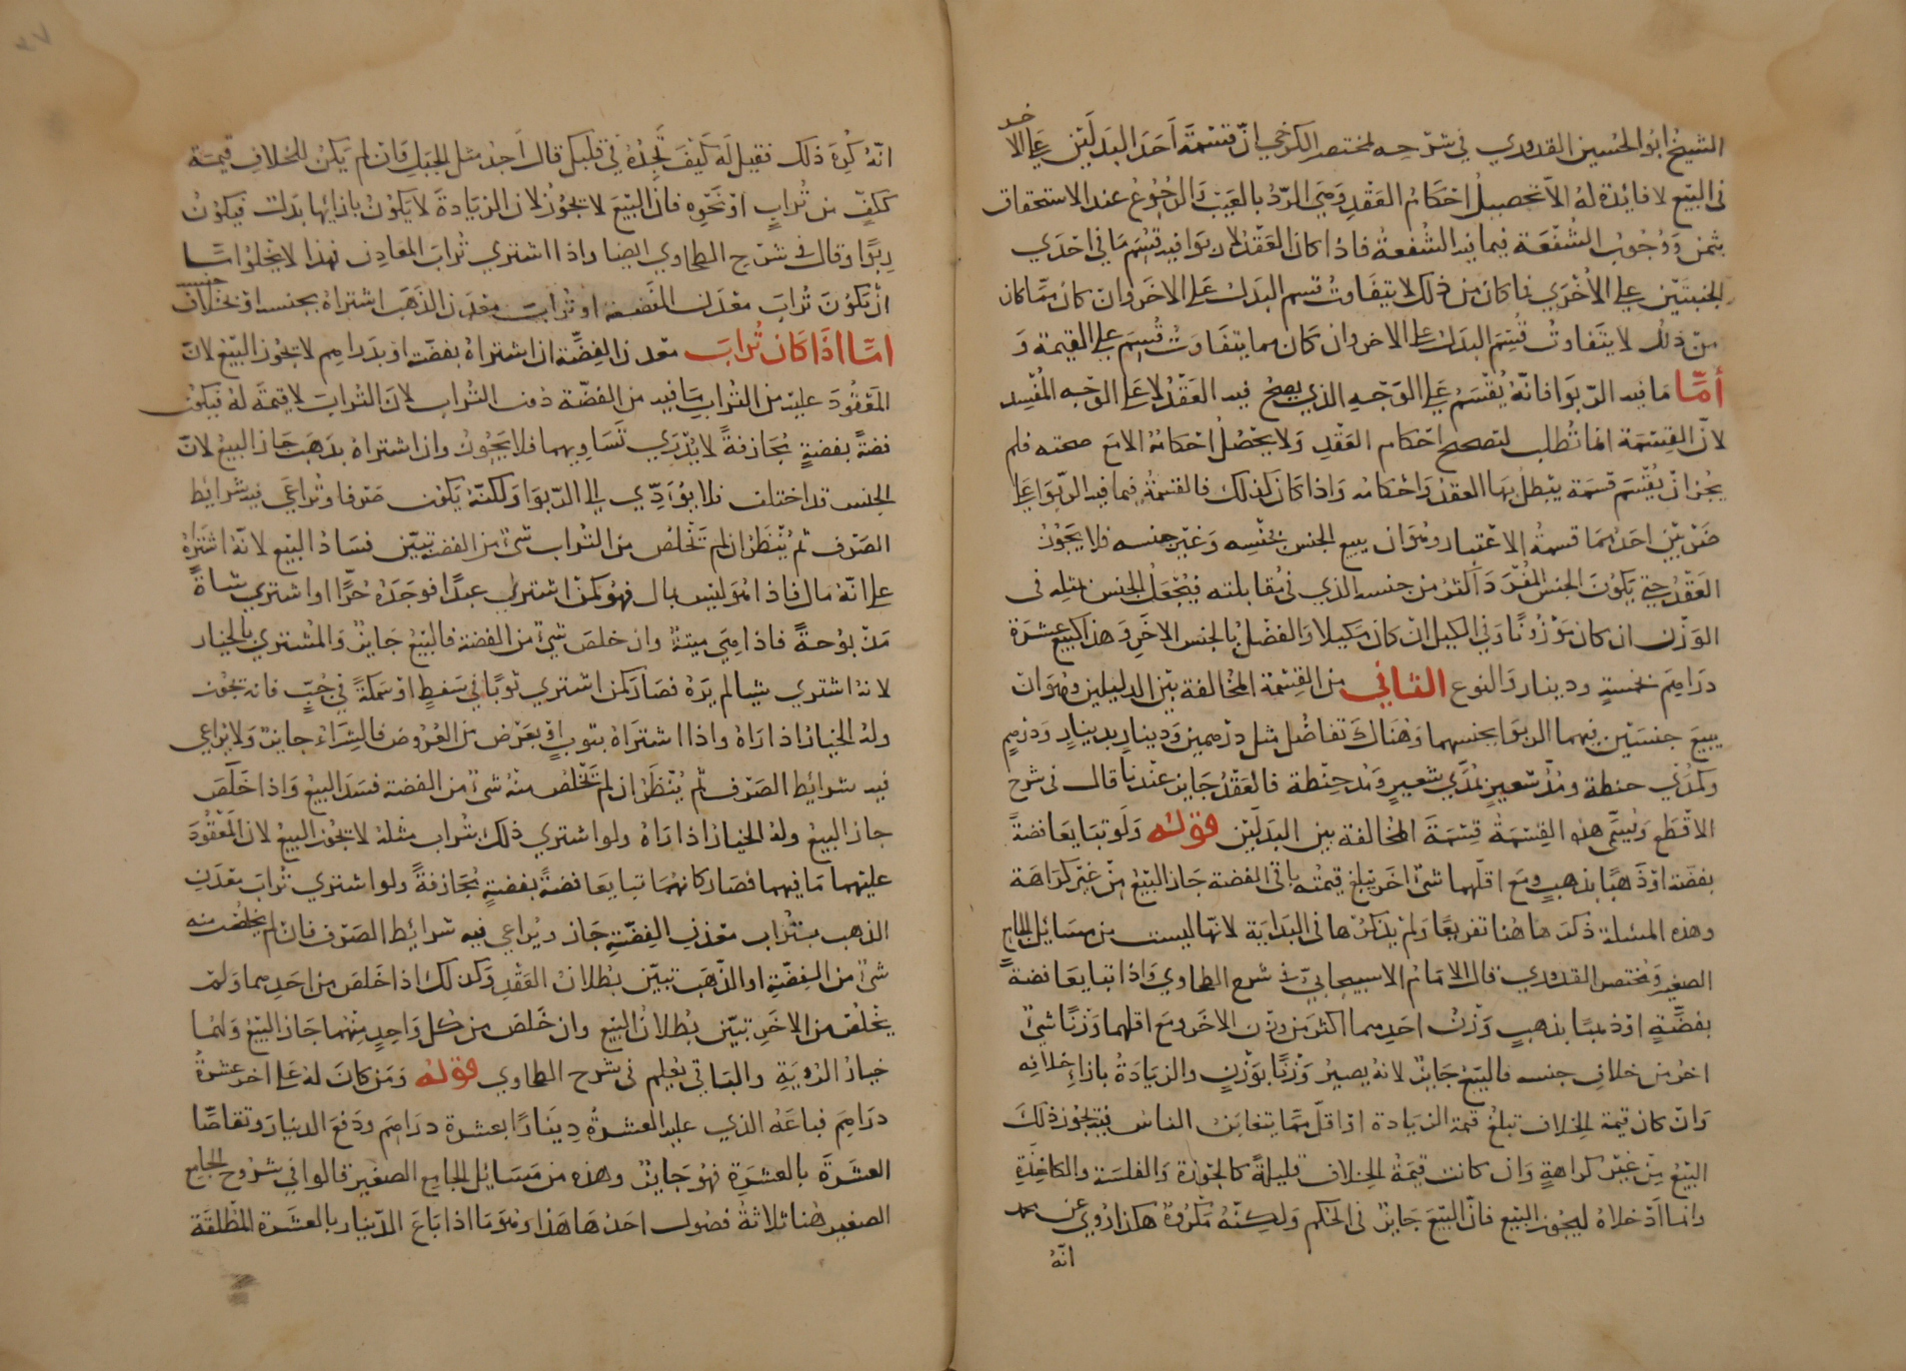 الشيخ ابو الحسين القدوري في شرحه لمختصر الكرخي ان قسمة احد البدلين على الاخر
في البيع لا فائدة له الا تحصيل احكام العقد وهي الرد بالعيب والرجوع عند الاستحقاق
بثمن ووجوب الشفعة فيما فيه الشفعة فاذا كان العقد لا ربوا فيه قسم ما في احدي
الجنبتين علي الاخري فما كان من ذلك لا يتفاوت قسم البدل على الاخر وان كان مما كان
من ذلك لا يتفاوت قسم البدل على الاخر وان كان مما يتفاوت قسم علي القيمة و
أمّا ما فيه الربوا فانه يقسم علي الوجه الذي يصح فيه العقد لا على الوجه المفسد
لان القسمة انما تطلب لتصحيح احكام العقد ولا يحصل احكامه الا مع صحته فلم
يجز ان يقسم قسمة يبطل بها العقد واحكامه واذا كان كذلك فالقسمة فيما فيه الربوا على
ضربين احدهما قسمة الاعتبار وهو ان يبيع الجنس بجنسه وغير جنسه فلا يجوز
العقد حتي يكون الجنس المفرد اكثر من جنسه الذي في مقابلته فيجعل الجنس بمثله في
الوزن ان كان موزونا وفي الكيل ان كان مكيلا والفضل بالجنس الاخر وهذا كبيع عشرة
دراهم بخمسة ودينار والنوع الثاني من القسمة المخالفة بين البدلين وهو ان
يبيع جنسين فيهما الربوا بجنسهما وهناك تفاضل مثل درهمين ودينار بدينار ودرهم
وكمدي حنطة ومد شعير بمدي شعير ومد حنطة فالعقد جايز عندنا قال في شرح
الاقطع ويسمى هذه القسمة قسمة المخالفة بين البدلين قوله ولو تبايعا فضة
بفضة او ذهبا بذهب ومع اقلهما شئ اخر تبلغ قيمته باقي الفضة جاز البيع من غير كراهة
وهذه المسئلة ذكرها هاهنا تفريعا ولم يذكرها في البداية لانها ليست من مسائل الجامع
الصغير ومختصر القدوري قال الامام الاسبيجابي في شرح الطحاوي واذا تبايعا فضة
بفضة او ذهبا بذهب وزن احدهما اكثر من وزن الاخر ومع اقلهما وزنا شئ
اخر من خلاف جنسه فالبيع جايز لانه يصير وزنا بوزن والزيادة بازاء خلافه
وان كان قيمة الخلاف تبلغ قيمة الزيادة او اقل مما يتغابن الناس فيه يجوز ذلك
البيع من غير كراهة وان كانت قيمة الخلاف قليلة كالجوزة والفلسة والكاغذة
وانما ادخلاه ليجوز البيع فان البيع جايز في الحكم ولكنه مكروه هكذا روي عن محمد
انه
انه كره ذلك فقيل له كيف تجده في قلبك قال اجد مثل الجبل فان لم يكن للخلاف قيمة
ككف من تراب او نحوه فان البيع لا يجوز لان الزيادة لا يكون بازائها بدل فيكون
ربوا وقال في شرح الطحاوي ايضا واذا اشتري تراب المعادن فهذا لا يخلوا اما
ان يكون تراب معدن الفضة او تراب معدن الذهب اشتراه بجنسه او بخلاف جنسه
امّا اذا كان تراب معدن الفضة ان اشتراه بفضة او بدراهم لا يجوز البيع لان
المعقود عليه من التراب ما فيه من الفضة دون التراب لان التراب لا قيمة له فيكون
فضة بفضة مجازفة لا يدري تساويهما فلا يجوز وان اشتراه بذهب جاز البيع لان
الجنس قد اختلف فلا يؤدي الى الربوا ولكنه يكون صرفا وتراعي فيه شرائط
الصرف ثم ينظر ان لم تخلص من التراب شئ من الفضة تبين فساد البيع لانه اشتراه
على انه مال فاذا هو ليس بمال فهو كمن اشتري عبدا فوجده حرا او اشتري شاة
مذبوحة فاذا هي ميتة وان خلص شئ من الفضة فالبيع جايز والمشتري بالخيار
لانه اشتري شيا لم يره فصار كمن اشتري ثوبا في سفط او سمكة في جب فانه يجوز
وله الخيار اذا راه واذا اشتراه بثوب او بعرض من العروض فالشراء جايز ولا يراعي
فيه شرائط الصرف ثم ينظر ان لم تخلص منه شئ من الفضة فسد البيع واذا خلص
جاز البيع وله الخيار اذا راه ولو اشتري ذلك بتراب مثله لا يجوز البيع لان المعقود
عليهما ما فيهما فصار كانهما تبايعا فضة بفضة مجازفة ولو اشتري تراب معدن
الذهب بتراب معدن الفضة جاز ويراعي فيه شرائط الصرف فان لم يخلص منه
شئ من الفضة او الذهب تبين بطلان العقد وكذلك اذا خلص من احدهما ولم
يخلص من الاخر تبين بطلان البيع وان خلص من كل واحد منهما جاز البيع ولهما
خيار الروية والباقي يعلم في شرح الطحاوي قوله ومن كان له على اخر عشرة
دراهم فباعه الذي عليه العشرة دينارا بعشرة دراهم ودفع الدينار وتقاصا
العشرة بالعشرة فهو جايز وهذه من مسائل الجامع الصغير قالوا في شروح الجامع
الصغير هنا ثلاثة فصول احدها هذا وهو ما اذا باع الدينار بالعشرة المطلقة